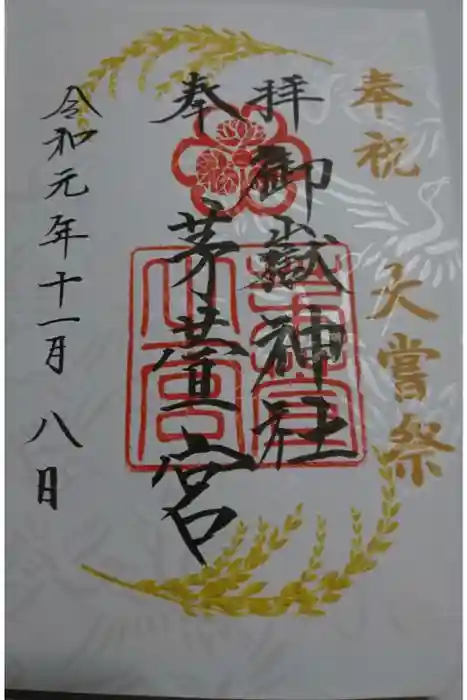 奉祝 大嘗祭
奉拝
御嶽神社
茅萱宮
令和元年十一月八日